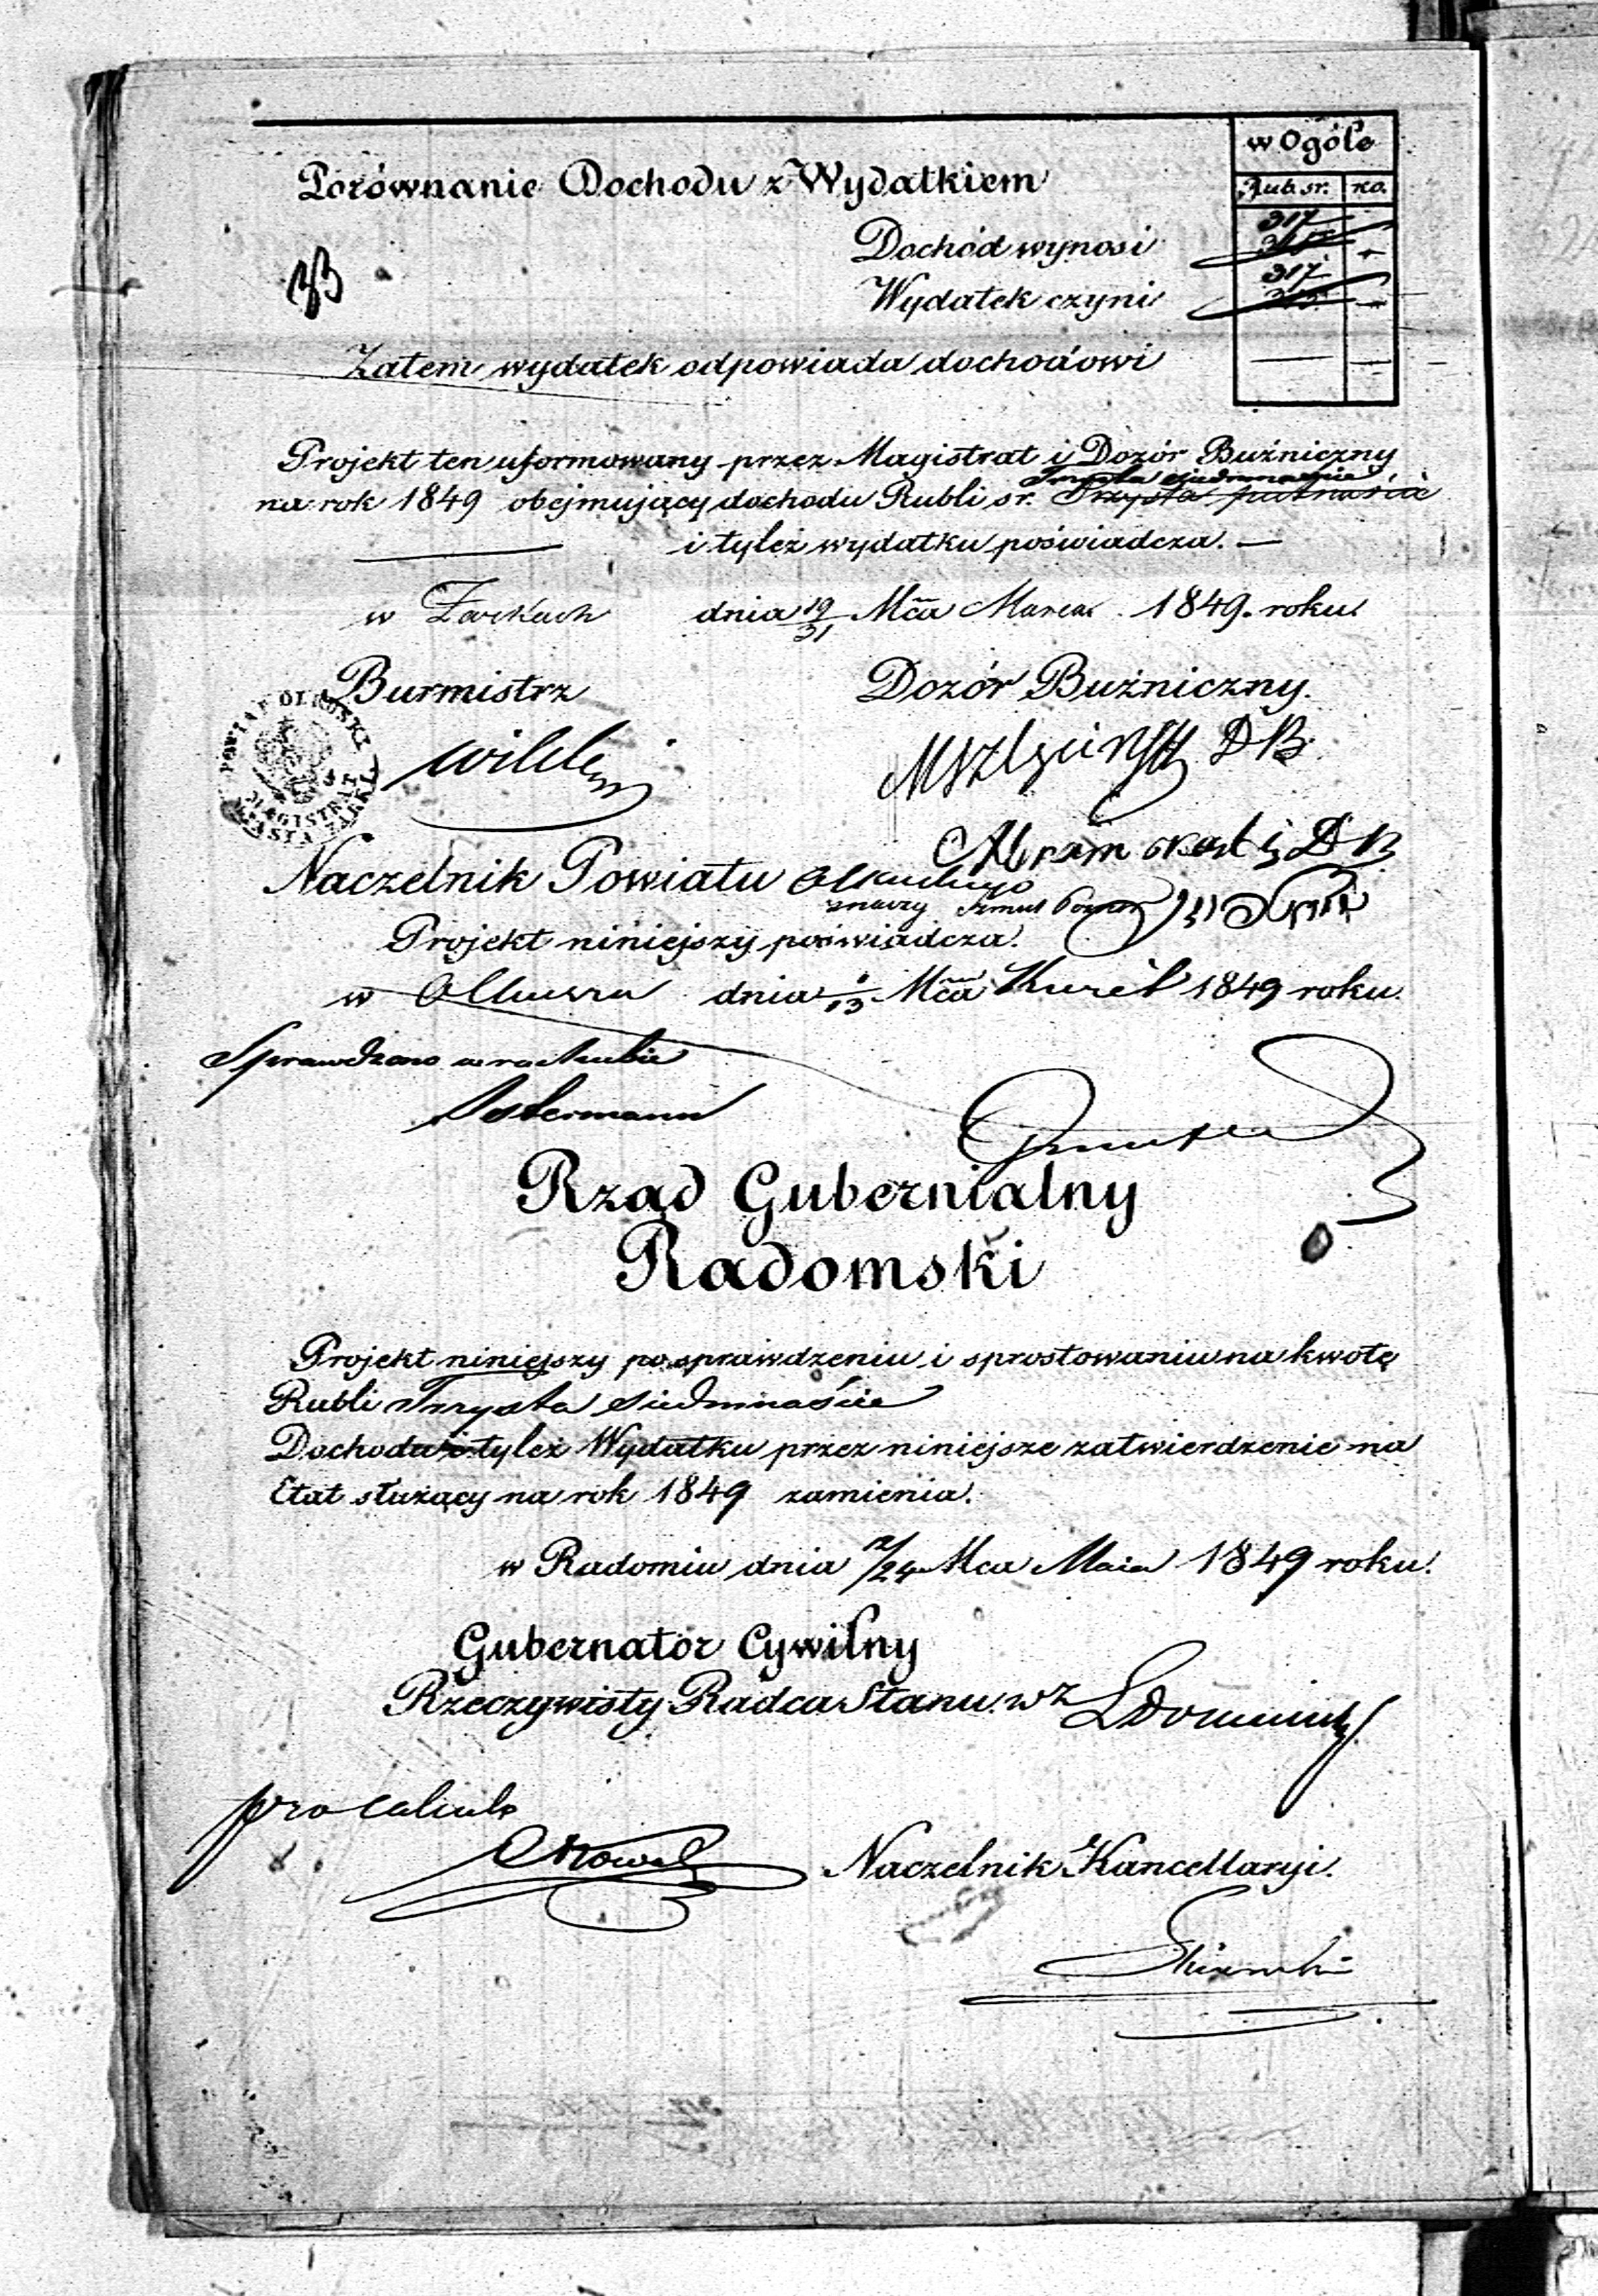 w Ogóle
Porównanie Dochodu z Wydatkiem
Rub. sr. ko.
317
Dochód wynosi 315 -
33
317
Wydatek czyni 315 -
Zatem wydatek odpowiada dochodowi — —
Projekt ten uformowany przez Magistrat i Dozór Buźniczny
Trzysta siedmnaście
na rok 1849 obejmujący dochodu Rubli sr. Trzysta piętnaście
i tyleż wydatku poświadcza. —
w Żarkach dnia 19/31 Mca Marca 1849. roku.
Burmistrz Dozór Buźniczny.
POWIAT OLKUSKI
MAGISTRAT MIASTA ŻARKI
DB
Abram DB
Naczelnik Powiatu Olkuskiego
znaczy Szmul
Projekt niniejszy poświadcza.
w Olkuszu dnia 1/13 Mca 1849 roku.
Sprawdzono w rachubie
Ostermann
Rząd Gubernialny
Radomski
Projekt niniejszy po sprawdzeniu i sprostowaniu na kwotę
Rubli Trzysta siedmnaście
Dochodu i tyleż Wydatku przez niniejsze zatwierdzenie na
Etat służący na rok 1849 zamienia.
w Radomiu dnia 12/24 Mca Maia 1849 roku.
Gubernator Cywilny
Rzeczywisty Radca Stanu. wz
pro calculo
Nowak
Naczelnik Kancellaryi.